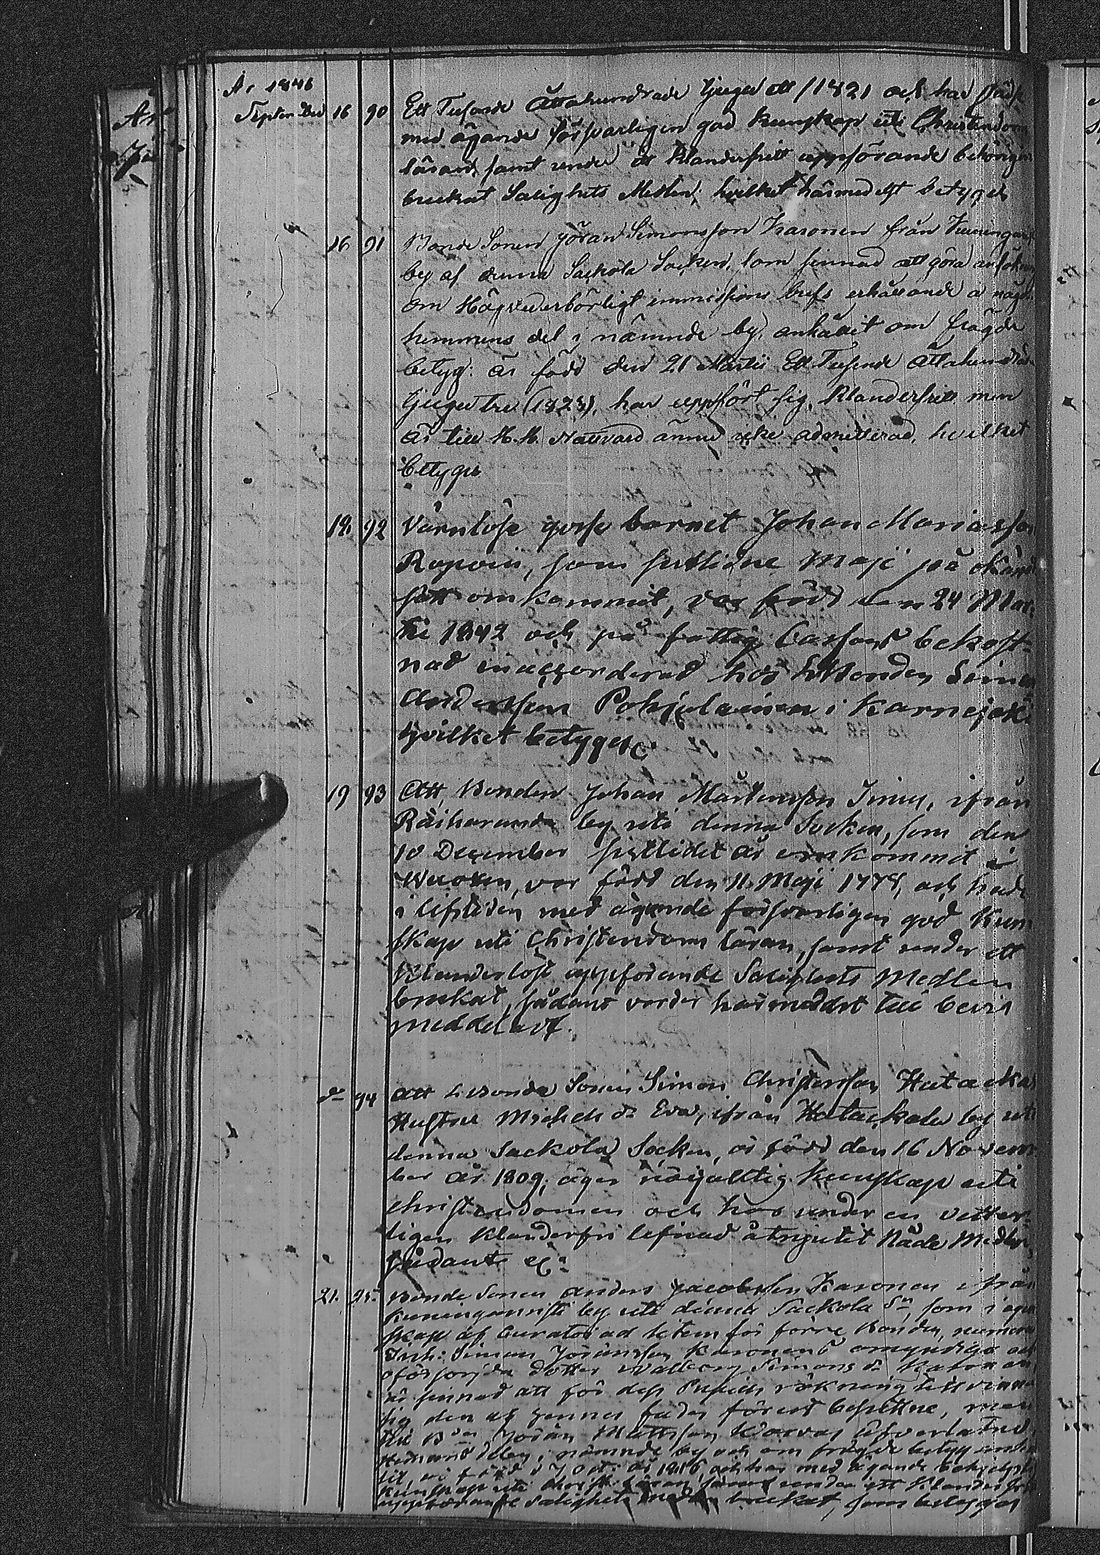 År 1846
September 16 90 Ett Tusende Åttahundrade tjuguett /1821 och har städse
med ägande försvarligen god kunskap uti Christendoms
läran, samt under ett klanderfritt uppförande behörigen
brukat Salighets Medlen, hvilket härmedelst betyges
16 91 Bonde Sonen Jöran Simonsson Karonen från
by af denna Sackola Socken, som sinnad att göra ansökning
om Högvederbörligt immissions brefs erhållande å
hemmans del i nämnde by, anhållit om frägde
betyg: är född den 21 Martii Ett Tusende Åttahundrade
tjugutre (1823), har uppfört sig klanderfritt men
är till H. H. Nattvard ännu icke admitterad, hvilket
betyges
18. 92 Värnlöse gosse barnet Johan Mariasson
Ropoin, som sistlidne Maji på okändt
sätt omkommit, var född den 24 Mar-
tii 1842 och på fattig Cassans bekost-
nad inaccorderad hos Bonden Simon
Andersson Pohjolainen i Karnejoki
hvilket betyges
19 93 Att Bonden Johan Mårtensson Inus, ifrån
Räiharanda by uti denna Socken, som den
10 December sistlidet år omkommit i
Wuoxen, var född den 11 Maji 1778, och hade
i lifstiden med ägande försvarligen god kun
skap uti Christendoms läran, samt under ett
klanderlöst uppförande Salighets Medlen
brukat, sådant varder härmedelst till bevis
meddelat.
d° 94 Att Bonde Sonen Simon Christersson Hatackas
Hustru Michels dr Eva, ifrån Hatackala by uti
denna Sackola Socken, är född den 16 Novem
ber år 1809, äger nöjaktig kunskap uti
christendomen och har under en vitter-
ligen klanderfri lefnad åtnjutit Nåde Medlen,
sådant &c:
21. 95. Bonde Sonen Anders Jacobsson Karonen ifrån
by uti denna Sackola Sn som i egen
skap af Curator ad litem för förre Bonden, numera
Simon Jöransson Karonens omyndiga och
oförsörjda dotter Walborg Simons dr Karonen
är sinnad att för dess Pupills räkning
sig den af hennes fader förut besuttne, men
till Bden Jöran Mattsson Korvas öfverlåtne
Hemmans del, i nämnde by och om frägde betyg anhål
lit, är född d 7 Oct. år 1816, och har med ägande behjelplig
kunskap uti Christ. läran, samt under ett klanderfritt
uppförande salighets medlen brukat, som betyges